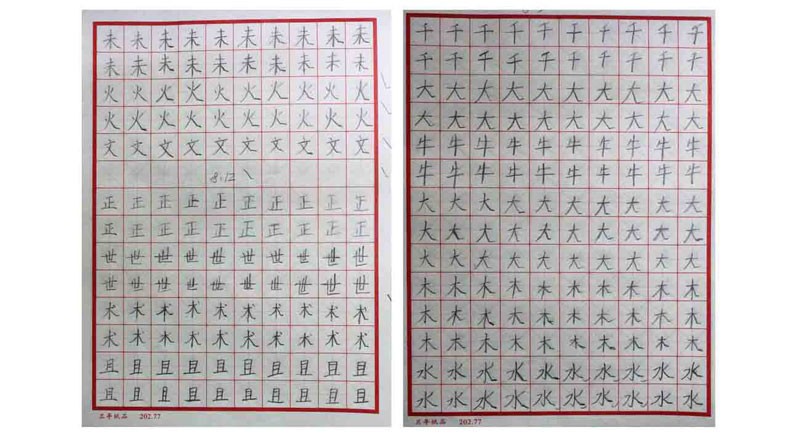 未未未未未未未未未未
未未未未未未未未未未
火火火火火火火火火火
火火火火火火火火火火
文文文文文文文文文文
8.12
正正正正正正正正正正
正正正正正正正正正正
世世世世世世世世世世
世世世世世世世世世世
术术术术术术术术术术
术术术术术术术术术术
且且且且且且且且且且
且且且且且且且且且且
纸品 202.77
千千千千千千千千千千
千千千千千千千千千千
大大大大大大大大大大
大大大大大大大大大大
牛牛牛牛牛牛牛牛牛牛
牛牛牛牛牛牛牛牛牛牛
大大大大大大大大大大
大大大大大大大大大大
大大大大大大大大大大
木木木木木木木木木木
木木木木木木木木木木
木木木木木木木木木木
水水水水水水水水水水
水水水水水水水水水水
纸品 202.77